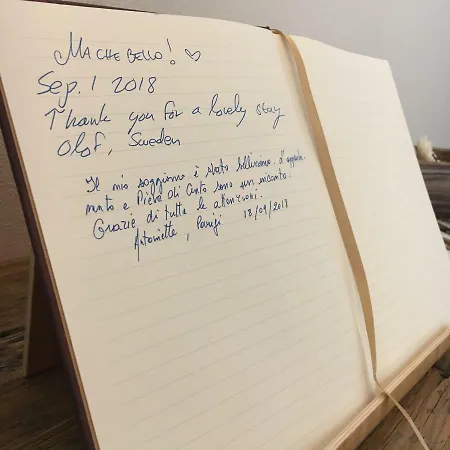 MA CHE BELLO! ♡
Sep. 1 2018
Thank you for a lovely stay
Olof, Sweden
Il mio soggiorno è stato bellissimo. L'apparta
mento e Pieve di Cento sono un incanto.
Grazie di tutte le attenzioni.
Antoinette, Parigi 18/09/2018